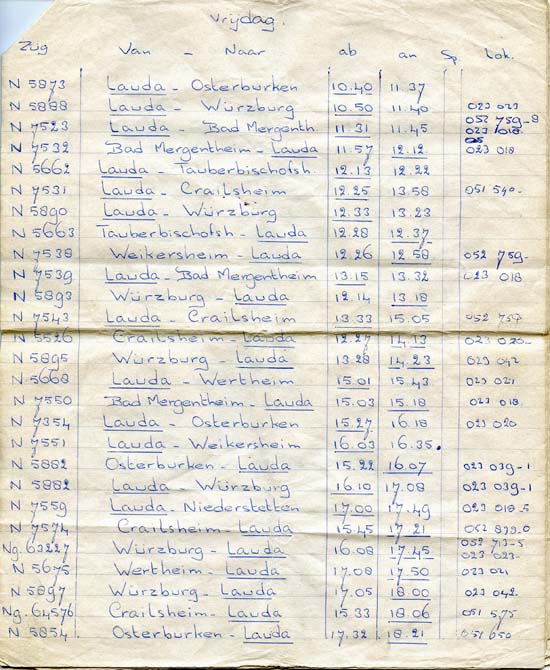 Vrijdag.
Zug Van - Naar ab an Sp. Lok.
N 5873 Lauda - Osterburken 10.40 11.37
N 5888 Lauda - Würzburg 10.50 11.40 023 023
N 7523 Lauda - Bad Mergenth. 11.31 11.45 052 759-8 023 018
N 7532 Bad Mergentheim - Lauda 11.57 12.12 023 018
N 5662 Lauda - Tauberbischofsh. 12.13 12.22
N 7531 Lauda - Crailsheim 12.25 13.58 051 540-
N 5890 Lauda - Würzburg 12.33 13.23
N 5663 Tauberbischofsh - Lauda 12.28 12.37
N 7538 Weikersheim - Lauda 12.26 12.58 052 759-
N 7539 Lauda - Bad Mergentheim 13.15 13.32 023 018
N 5893 Würzburg - Lauda 12.14 13.18
N 7543 Lauda - Crailsheim 13.33 15.05 052 759
N 5526 Crailsheim - Lauda 12.27 14.13 023 020-
N 5895 Würzburg - Lauda 13.28 14.23 023 042
N 5668 Lauda - Wertheim 15.01 15.43 023 021
N 7550 Bad Mergentheim - Lauda 15.03 15.18 023 018
N 7354 Lauda - Osterburken 15.27 16.18 023 020
N 7551 Lauda - Weikersheim 16.03 16.35.
N 5882 Osterburken - Lauda 15.22 16.07 023 039-1
N 5882 Lauda - Würzburg 16.10 17.08 023 039-1
N 7559 Lauda - Niederstetten 17.00 17.49 023 018-5
N 7574 Crailsheim - Lauda 15.45 17.21
Ng. 63227 Würzburg - Lauda 16.08 17.45 052 713-5 023 023-
N 5675 Wertheim - Lauda 17.08 17.50 023 021
N 5897 Würzburg - Lauda 17.05 18.00 023 042-
Ng. 64576 Crailsheim - Lauda 15.33 18.06 051 575
N 5854 Osterburken - Lauda 17.32 18.21 051 650